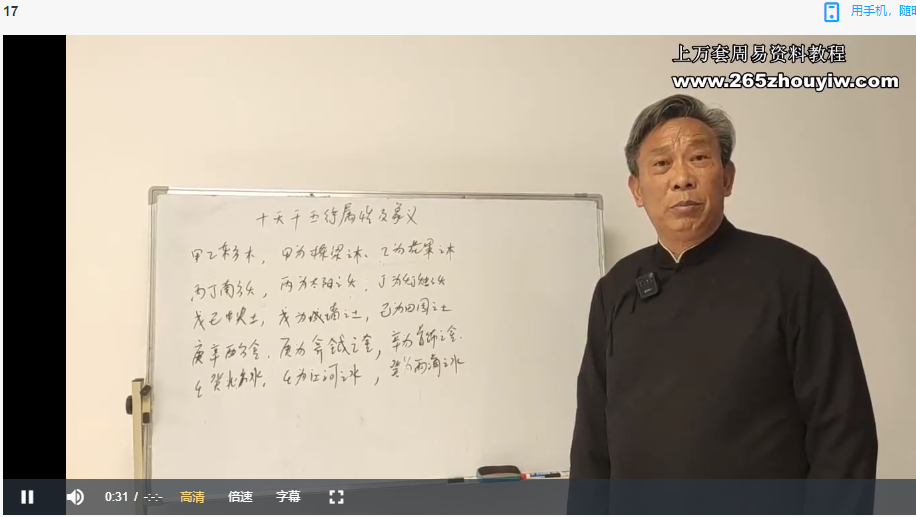 17
用手机，随时
上万套周易资料教程
www.265zhouyiw.com
十天干五行属性及象义
甲乙东方木，甲为栋梁之木、乙为花果之木
丙丁南方火，丙为太阳之火，丁为灯烛之火
戊己中央土，戊为城墙之土，己为田园之土
庚辛西方金，庚为斧钺之金，辛为首饰之金.
壬癸北方水，壬为江河之水，癸为雨滴之水
0:31 / -:-:-
高清
倍速
字幕